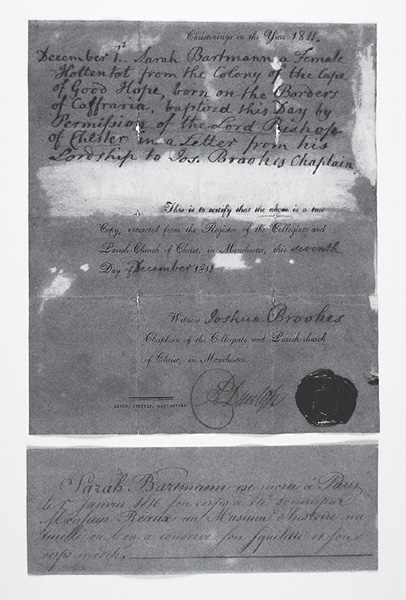 Christenings in the Year 1811.
December 1st Sarah Bartmann a Female
Hottentot from the Colony of the Cape
of Good Hope, born on the Borders
of Caffraria, baptized this Day by
Permission of the Lord Bishop
of Chester in a Letter from his
Lordship to Jos. Brookes Chaplain
This is to certify that the above is a true
Copy, extracted from the Register of the Collegiate and
Parish Church of Christ, in Manchester, this seventh
Day of December 1811
Witness Joshua Brookes
Chaplain of the Collegiate and Parish church
of Christ, in Manchester.
PRINTER, MANCHESTER.
Sarah Bartmann est morte à Paris
le Janvier 1816 son corps a été
Monsieur Reaux au Museum d'histoire na
turelle où l'on a conservé son squelette et son
corps